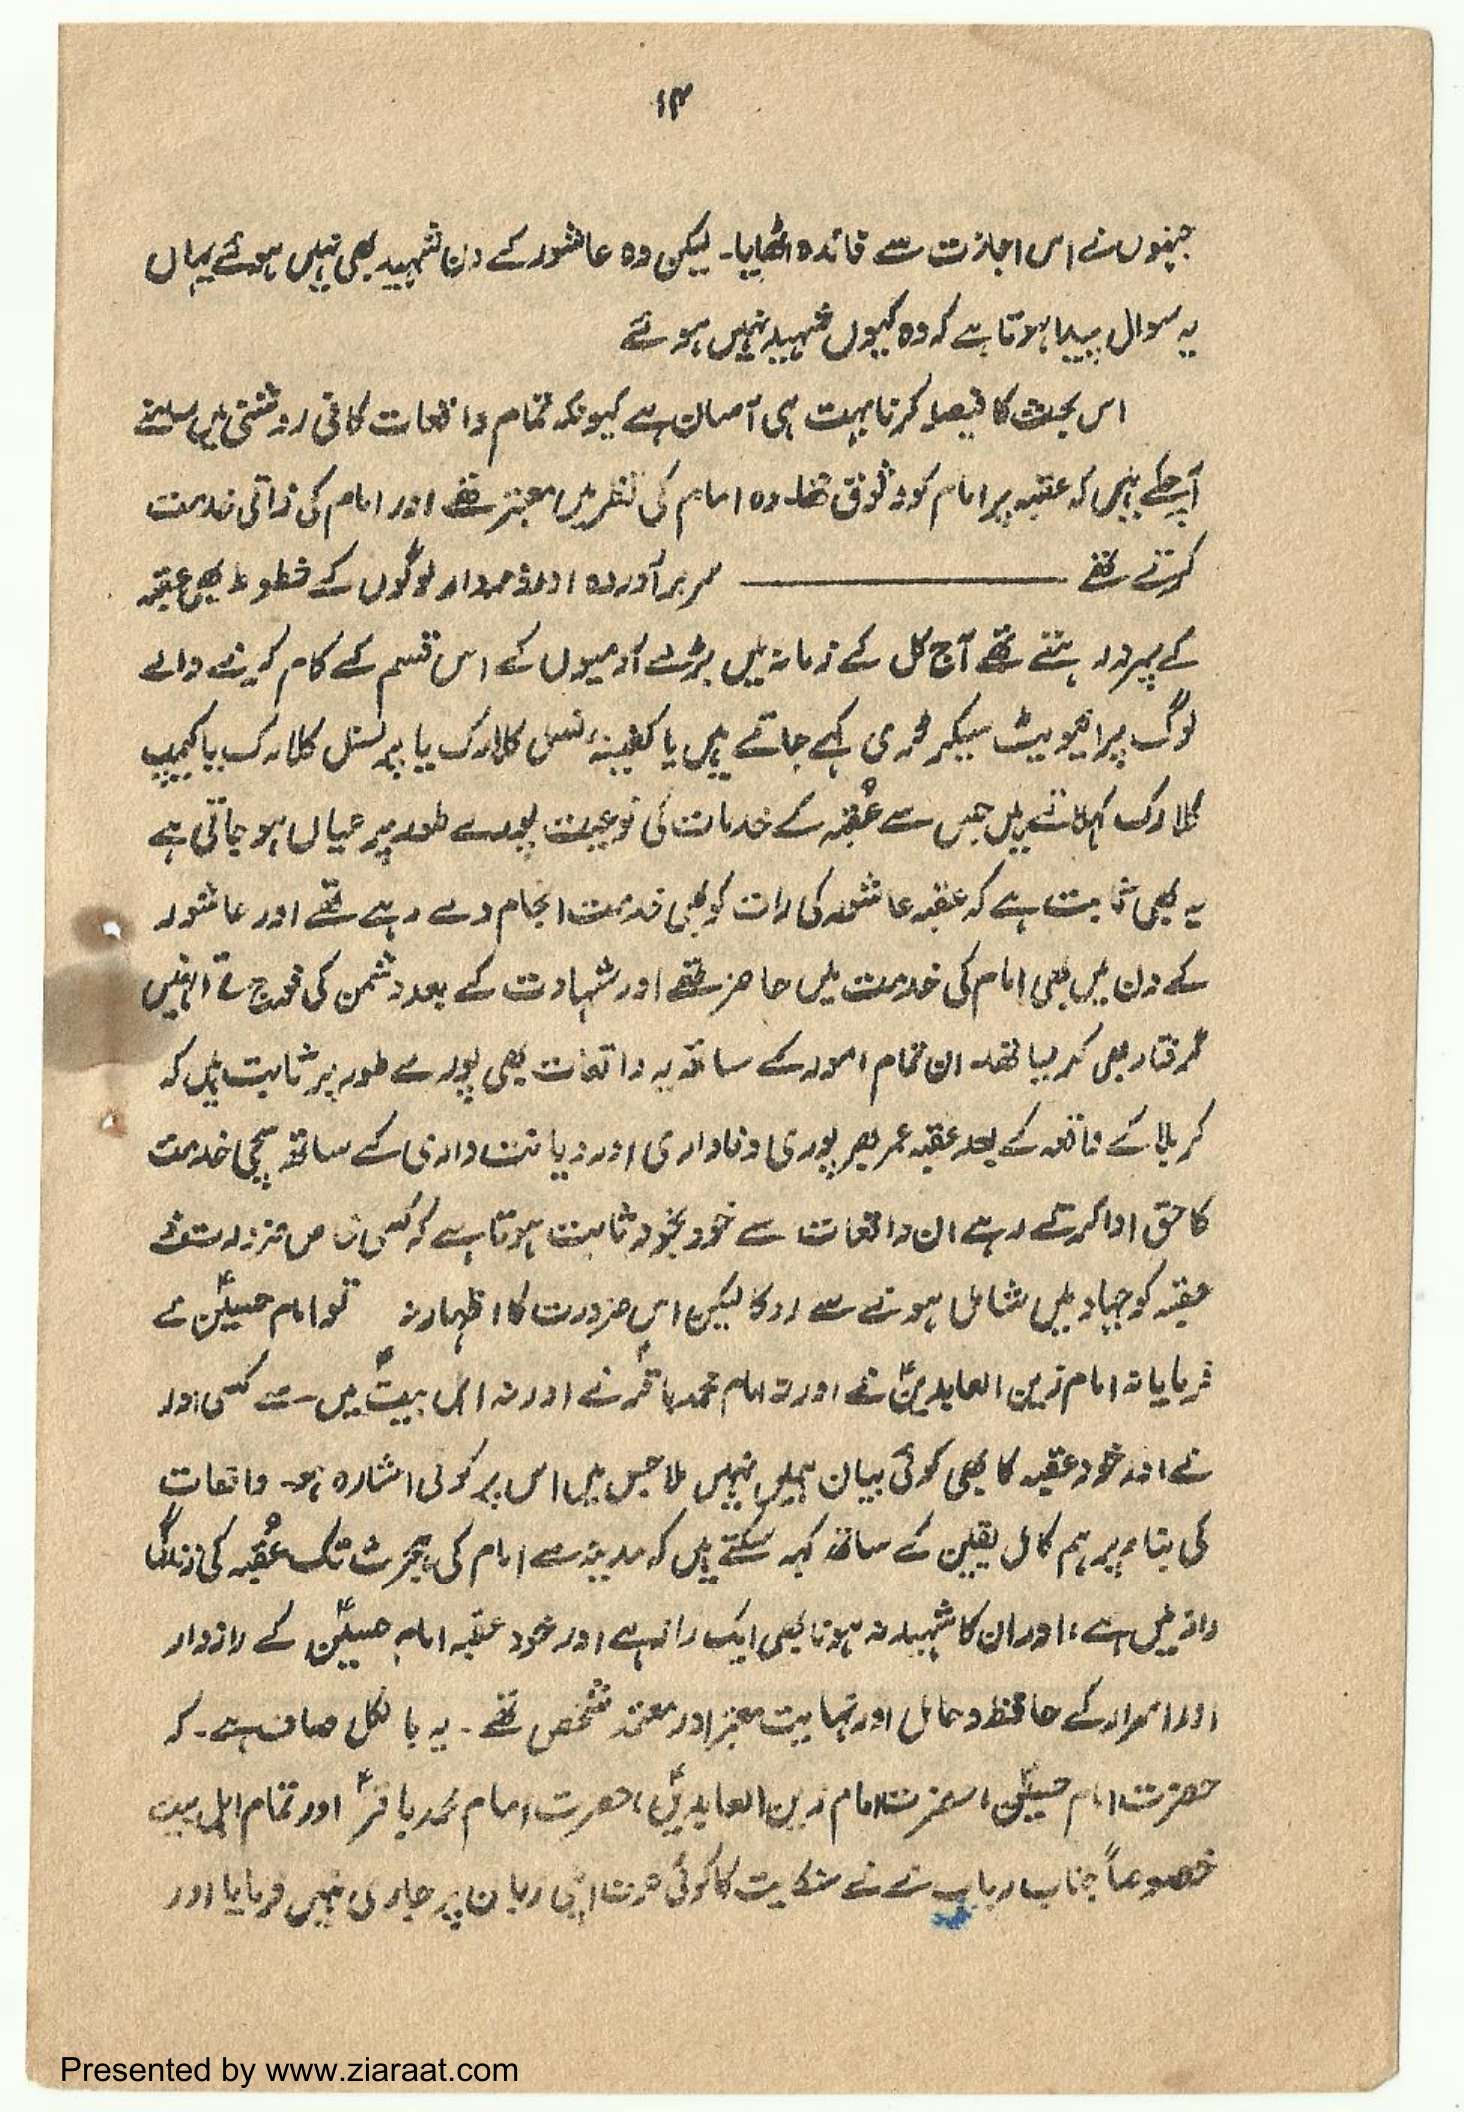 ۱۴
جنہوں نے اس اجازت سے فائدہ اٹھایا۔ لیکن وہ عاشور کے دن شہید بھی نہیں ہوئے یہاں
یہ سوال پیدا ہوتا ہے کہ وہ کیوں شہید نہیں ہوئے
اس بحث کا فیصلہ کرنا بہت ہی آسان ہے کیونکہ تمام واقعات کافی روشنی میں سامنے
آ چکے ہیں کہ عقبہ پر امام کو وثوق تھا۔ وہ امام کی نظر میں معتبر تھے اور امام کی ذاتی خدمت
کرتے تھے ——— سر برآوردہ اور ذمہ دار لوگوں کے خطوط بھی عقبہ
کے سپرد رہتے تھے آج کل کے زمانہ میں بڑے آدمیوں کے اس قسم کے کام کرنے والے
لوگ پرائیویٹ سیکرٹری کہے جاتے ہیں یا کلارک یا پرسنل کلارک یا کیمپ
کلارک کہلاتے ہیں جس سے عُقبہ کے خدمات کی نوعیت پورے طور پر عیاں ہو جاتی ہے
یہ بھی ثابت ہے کہ عقبہ عاشور کی رات کو بھی خدمت انجام دے رہے تھے اور عاشور
کے دن میں بھی امام کی خدمت میں حاضر تھے اور شہادت کے بعد دشمن کی فوج نے انہیں
گرفتار بھی کر لیا تھا۔ ان تمام امور کے ساتھ یہ واقعات بھی پورے طور پر ثابت ہیں کہ
کربلا کے واقعہ کے بعد عقبہ عمر بھر پوری وفاداری اور دیانت داری کے ساتھ سچی خدمت
کا حق ادا کرتے رہے ان واقعات سے خود بخود ثابت ہوتا ہے کہ کسی خاص ضرورت نے
عقبہ کو جہاد میں شامل ہونے سے روکا لیکن اس ضرورت کا اظہار نہ تو امام حسینؑ نے
فرمایا نہ امام زین العابدینؑ نے اور نہ امام محمد باقرؑ نے اور نہ اہل بیتؑ میں سے کسی اور
نے اور خود عقبہ کا بھی کوئی بیان ہمیں نہیں ملا جس میں اس پر کوئی اشارہ ہو۔ واقعات
کی بناء پر ہم کامل یقین کے ساتھ کہہ سکتے ہیں کہ مدینہ سے امام کی ہجرت تک عُقبہ کی زندگی
راز میں ہے، اور ان کا شہید نہ ہونا بھی ایک راز ہے اور خود عقبہ امام حسینؑ کے رازدار
اور اسرار کے حافظ و حامل اور نہایت معتبر اور معتمد شخص تھے۔ یہ بالکل صاف ہے۔ کہ
حضرت امام حسینؑ، حضرت امام زین العابدینؑ، حضرت امام محمد باقرؑ اور تمام اہل بیت
خصوصاً جناب رباب نے شکایت کا کوئی حرف اپنی زبان پر جاری نہیں فرمایا اور
Presented by www.ziaraat.com